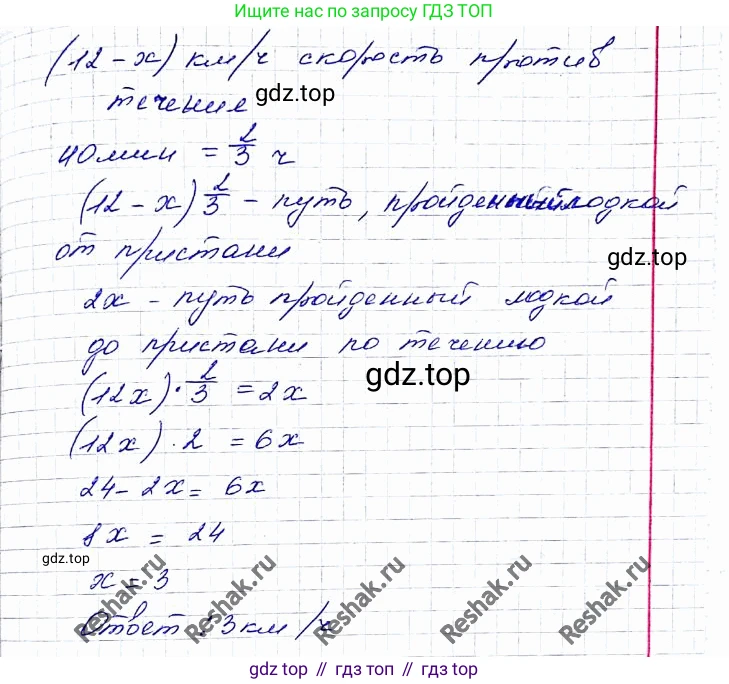 Ищите нас по запросу ГДЗ ТОП
(12 - x) км/ч скорость против
течение
gdz.top
40 мин = 2/3 ч
(12 - x) 2/3 - путь, пройденный лодкой
от пристани
gdz.top
2x - путь пройденный лодкой
до пристани по течению
(12x) · 2/3 = 2x
gdz.top
(12x) · 2 = 6x
24 - 2x = 6x
8x = 24
gdz.top
x = 3
Ответ: 3 км/ч
Reshak.ru
Reshak.ru
Reshak.ru
Reshak.ru
gdz top // гдз топ // gdz.top